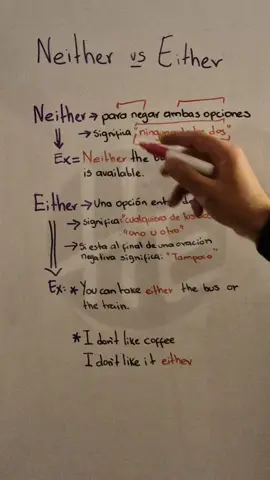 Neither vs Either
Neither → para negar ambas opciones
→ Significa "ninguno de los dos"
Ex= Neither the
is available.
Either → Una opción
→ significa: "cualquiera de
"uno u otro"
→ Si esta al final de una oración
negativa significa: "Tampoco"
Ex: * You can take either the bus or
the train.
* I don't like coffee
I don't like it either